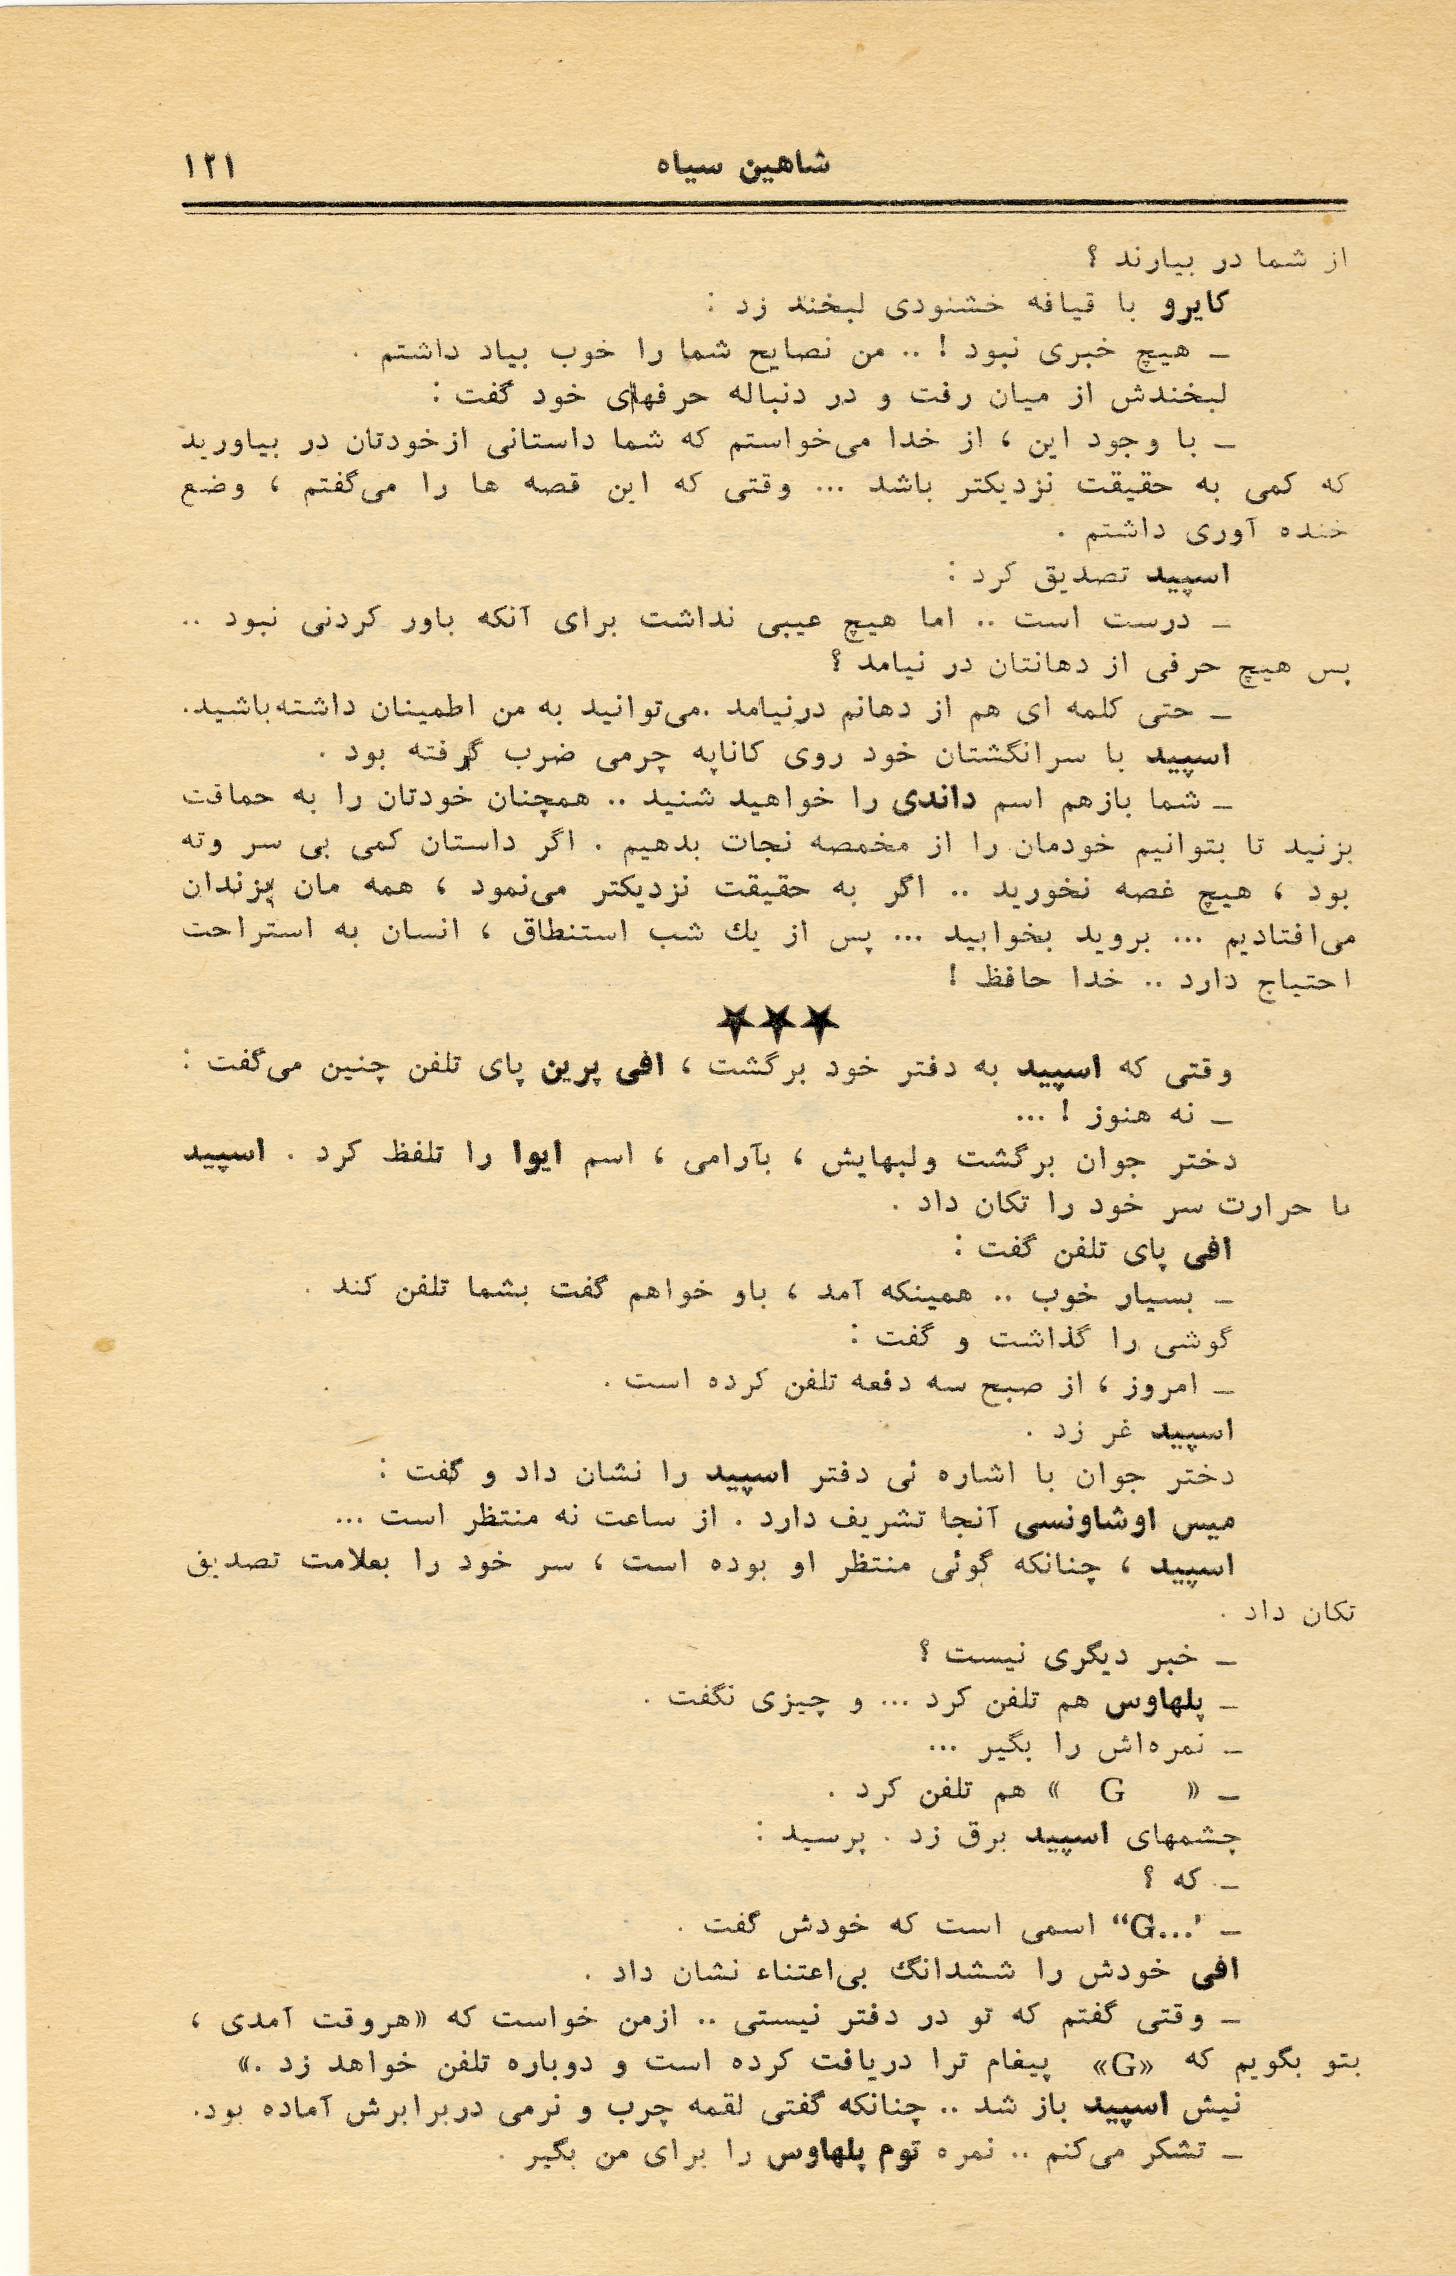 شاهین سیاه ۱۲۱
از شما در بیارند ؟
کایرو با قیافه خشنودی لبخند زد :
ـ هیچ خبری نبود ! .. من نصایح شما را خوب بیاد داشتم .
لبخندش از میان رفت و در دنباله حرفهای خود گفت :
ـ با وجود این ، از خدا می‌خواستم که شما داستانی ازخودتان در بیاورید
که کمی به حقیقت نزدیکتر باشد ... وقتی که این قصه ها را می‌گفتم ، وضع
خنده آوری داشتم .
اسپید تصدیق کرد :
ـ درست است .. اما هیچ عیبی نداشت برای آنکه باور کردنی نبود ..
پس هیچ حرفی از دهانتان در نیامد ؟
ـ حتی کلمه ای هم از دهانم درنیامد .می‌توانید به من اطمینان داشته‌باشید.
اسپید با سرانگشتان خود روی کاناپه چرمی ضرب گرفته بود .
ـ شما بازهم اسم داندی را خواهید شنید .. همچنان خودتان را به حماقت
بزنید تا بتوانیم خودمان را از مخمصه نجات بدهیم . اگر داستان کمی بی سر وته
بود ، هیچ غصه نخورید .. اگر به حقیقت نزدیکتر می‌نمود ، همه مان بزندان
می‌افتادیم ... بروید بخوابید ... پس از یك شب استنطاق ، انسان به استراحت
احتیاج دارد .. خدا حافظ !
★★★
وقتی که اسپید به دفتر خود برگشت ، افی پرین پای تلفن چنین می‌گفت :
ـ نه هنوز ! ...
دختر جوان برگشت ولبهایش ، بآرامی ، اسم ایوا را تلفظ کرد . اسپید
با حرارت سر خود را تکان داد .
افی پای تلفن گفت :
ـ بسیار خوب .. همینکه آمد ، باو خواهم گفت بشما تلفن کند .
گوشی را گذاشت و گفت :
ـ امروز ، از صبح سه دفعه تلفن کرده است .
اسپید غر زد .
دختر جوان با اشاره ئی دفتر اسپید را نشان داد و گفت :
میس اوشاونسی آنجا تشریف دارد . از ساعت نه منتظر است ...
اسپید ، چنانکه گوئی منتظر او بوده است ، سر خود را بعلامت تصدیق
تکان داد .
ـ خبر دیگری نیست ؟
ـ پلهاوس هم تلفن کرد ... و چیزی نگفت .
ـ نمره‌اش را بگیر ...
ـ « G » هم تلفن کرد .
چشمهای اسپید برق زد . پرسید :
ـ که ؟
ـ “G...’ اسمی است که خودش گفت .
افی خودش را ششدانگ بی‌اعتناء نشان داد .
ـ وقتی گفتم که تو در دفتر نیستی .. ازمن خواست که «هروقت آمدی ،
بتو بگویم که «G» پیغام ترا دریافت کرده است و دوباره تلفن خواهد زد .»
نیش اسپید باز شد .. چنانکه گفتی لقمه چرب و نرمی دربرابرش آماده بود.
ـ تشکر می‌کنم .. نمره توم پلهاوس را برای من بگیر .